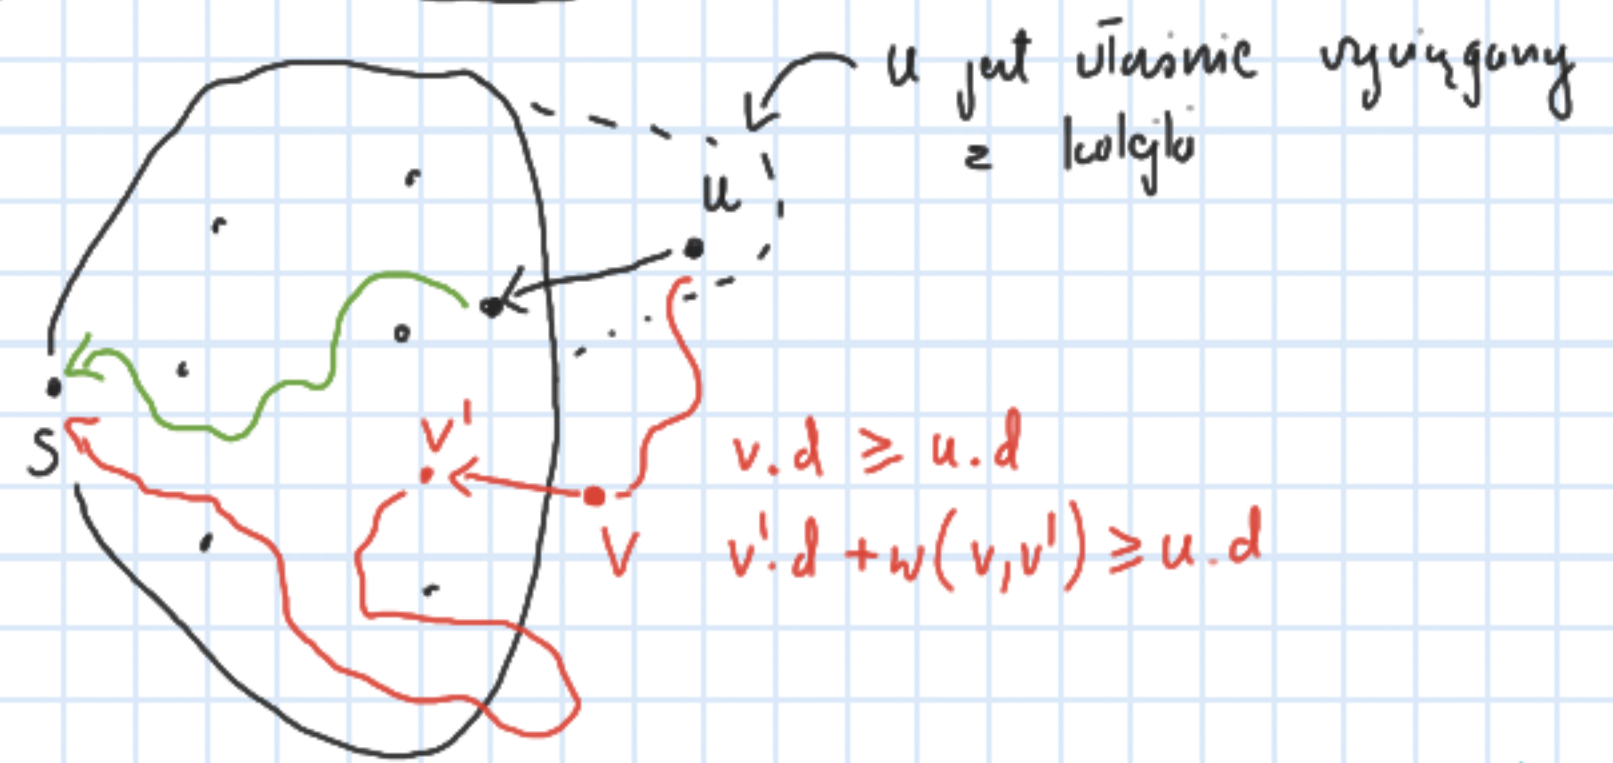 u jest właśnie wyciągany
z kolejki
u
S
v'
v.d ≥ u.d
v
v'.d + w(v,v') ≥ u.d